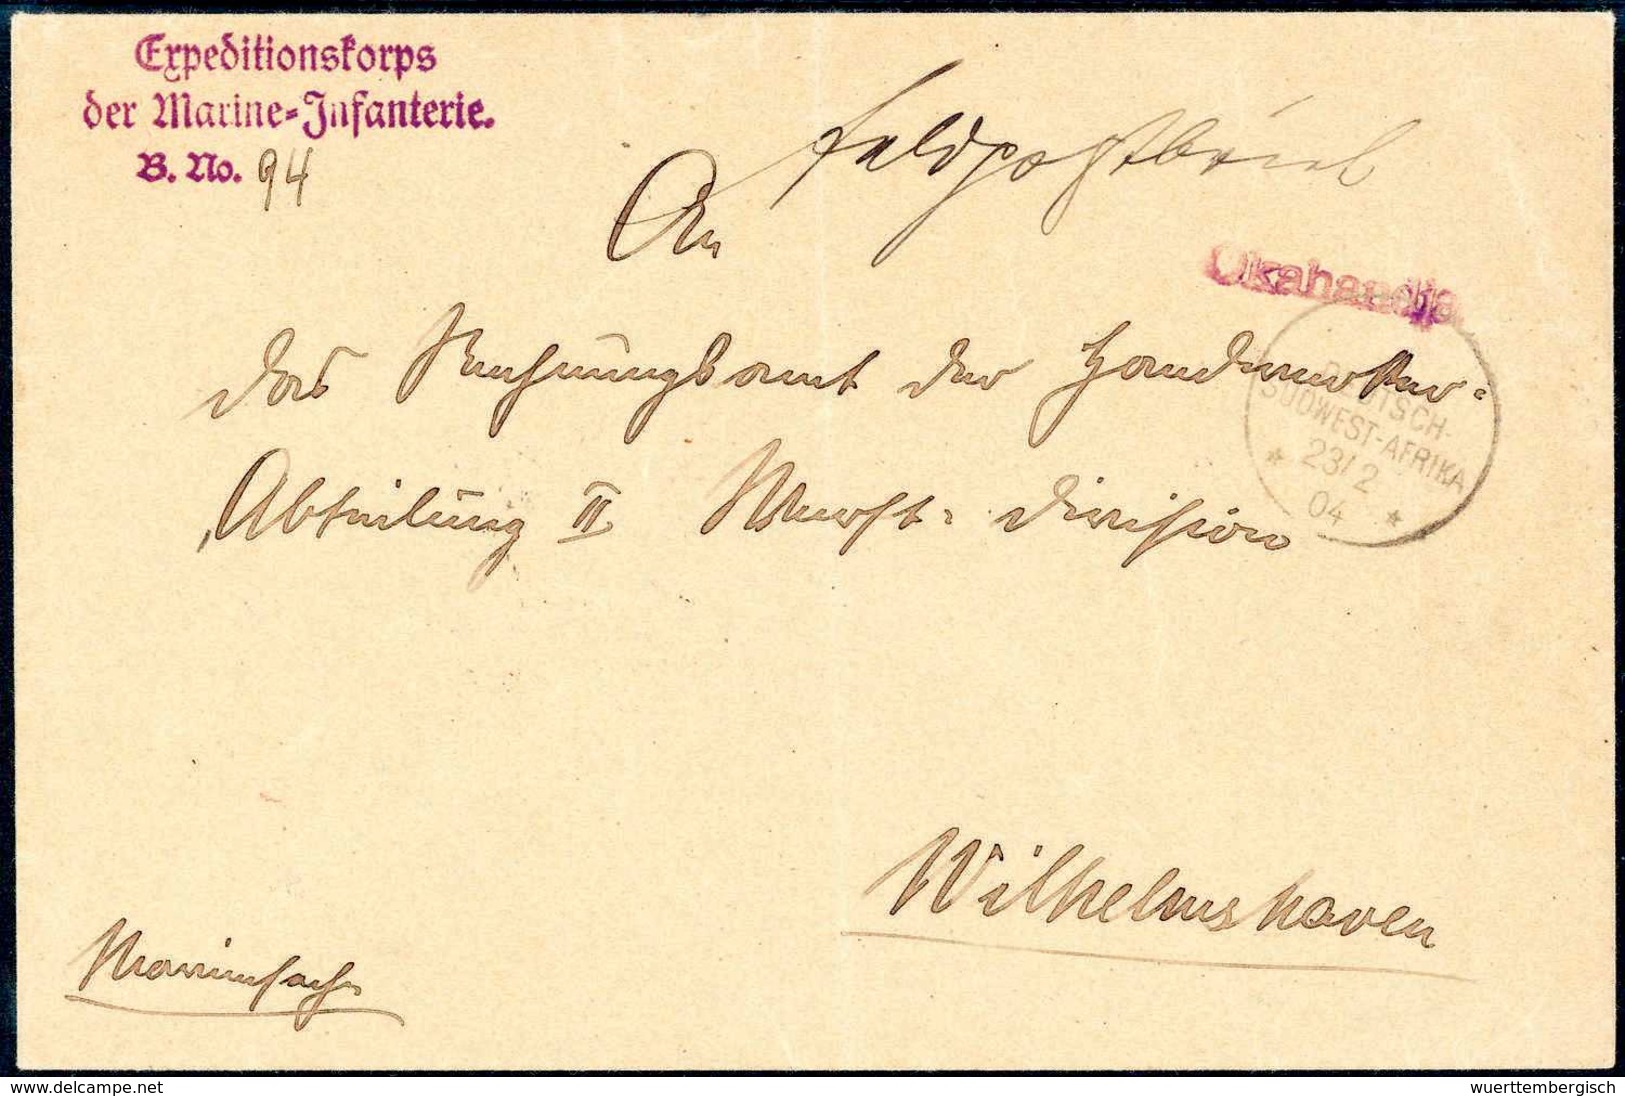 Expeditionskorps
der Marine-Infanterie.
B. No. 94
Feldpostbrief
An
Okahandja
das Rechnungsamt der Handwerker-
Abteilung II Werft-Division
DEUTSCH-
SÜDWEST-AFRIKA
23/2
04
Wilhelmshaven
Marinesache
delcampe.net
wuerttembergisch